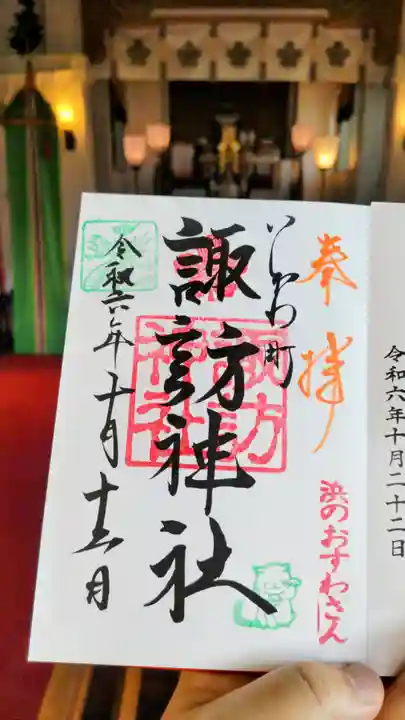 令和六年十月二十二日
奉拝
浜のおすわさん
町
諏訪神社
諏訪神社
令和六年十月